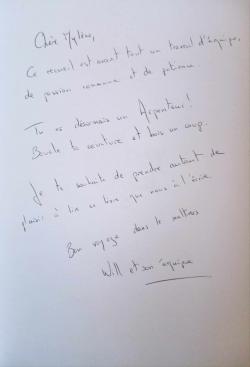 Chère Mylène,
Ce recueil est avant tout un travail d'équipe,
de passion commune et de patience.
Tu es désormais un Arpenteur !
Boucle ta ceinture et bois un coup.
Je te souhaite de prendre autant de
plaisir à lire ce livre que nous à l'écrire
Bon voyage dans le
Will et son équipe